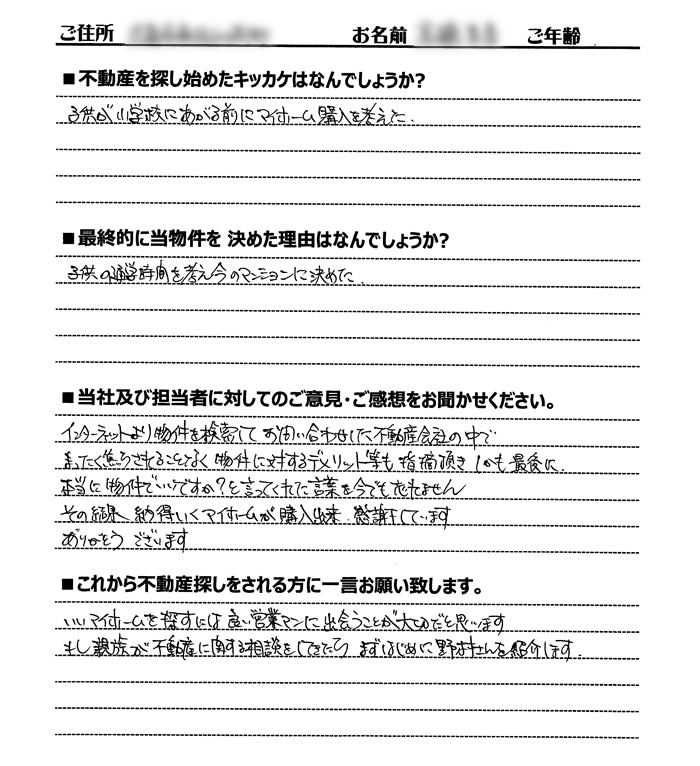 ご住所 お名前 ご年齢
■不動産を探し始めたキッカケはなんでしょうか?
子供が小学校にあがる前にマイホーム購入を考えた.
■最終的に当物件を 決めた理由はなんでしょうか?
子供の通学時間を考え今のマンションに決めた.
■当社及び担当者に対してのご意見・ご感想をお聞かせください。
インターネットより物件を検索して お問い合わせした不動産会社の中で
まったく焦らされることなく 物件に対するデメリット等も 指摘頂き しかも最後に.
本当に物件でいいですか?と言ってくれた言葉を今でも忘れません
その結果 納得いくマイホームが購入出来 感謝しています
ありがとう ございます
■これから不動産探しをされる方に一言お願い致します。
いいマイホームを探すには 良い営業マンに出会うことが大切だと思います
もし親族が不動産に関する相談をしてきたら まずはじめに野村さんを紹介します.